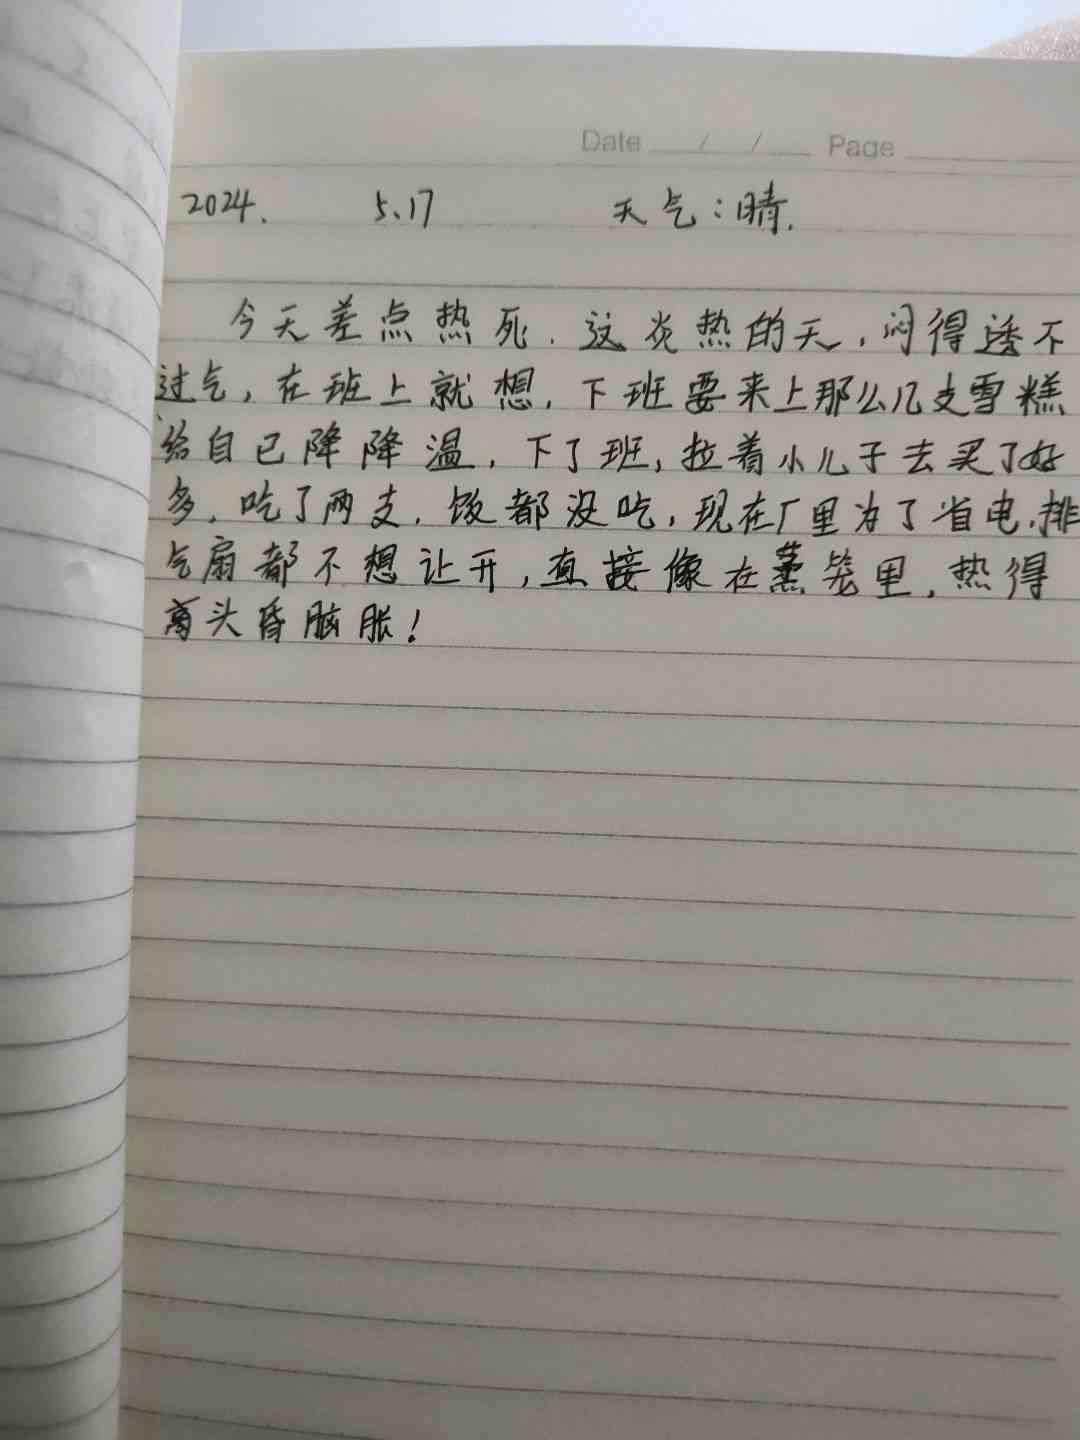 Date / / Page
2024. 5.17 天气：晴.
今天差点热死.这炎热的天,闷得透不
过气,在班上就想,下班要来上那么几支雪糕
给自已降降温,下了班,拉着小儿子去买了好
多.吃了两支.饭都没吃,现在厂里为了省电,排
气扇都不想让开,直接像在蒸笼里,热得
头昏脑胀!